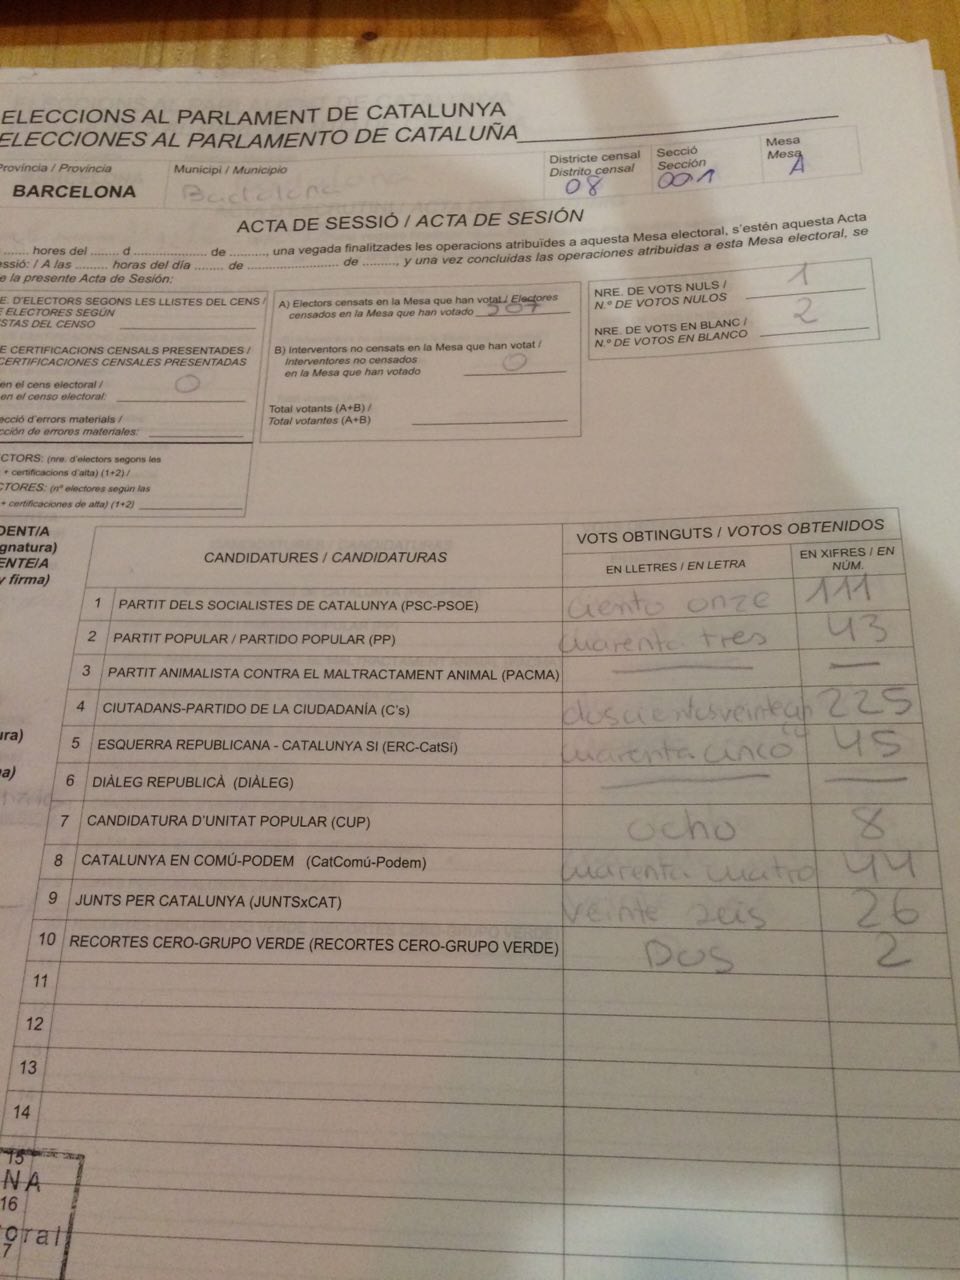 ELECCIONS AL PARLAMENT DE CATALUNYA
ELECCIONES AL PARLAMENTO DE CATALUÑA
Província / Provincia
BARCELONA
Municipi / Municipio
Badalona
Districte censal
Distrito censal
08
Secció
Sección
001
Mesa
Mesa
A
ACTA DE SESSIÓ / ACTA DE SESIÓN
hores del ....... d ............ de ........., una vegada finalitzades les operacions atribuïdes a aquesta Mesa electoral, s'estén aquesta Acta
ssió: / A las ........ horas del día ....... de ............ de ........., y una vez concluidas las operaciones atribuidas a esta Mesa electoral, se
e la presente Acta de Sesión:
E. D'ELECTORS SEGONS LES LLISTES DEL CENS /
E ELECTORES SEGÚN
STAS DEL CENSO
E CERTIFICACIONS CENSALS PRESENTADES /
CERTIFICACIONES CENSALES PRESENTADAS
en el cens electoral /
en el censo electoral: 0
ecció d'errors materials /
cción de errores materiales:
CTORS: (nre. d'electors segons les
+ certificacions d'alta) (1+2) /
CTORES: (nº electores según las
+ certificaciones de alta) (1+2)
A) Electors censats en la Mesa que han votat / Electores
censados en la Mesa que han votado 507
B) Interventors no censats en la Mesa que han votat /
Interventores no censados
en la Mesa que han votado 0
Total votants (A+B) /
Total votantes (A+B)
NRE. DE VOTS NULS /
N.º DE VOTOS NULOS 1
NRE. DE VOTS EN BLANC /
N.º DE VOTOS EN BLANCO 2
DENT/A
gnatura)
ENTE/A
y firma)
ura)
a)
CANDIDATURES / CANDIDATURAS
VOTS OBTINGUTS / VOTOS OBTENIDOS
EN LLETRES / EN LETRA
EN XIFRES / EN
NÚM.
1 PARTIT DELS SOCIALISTES DE CATALUNYA (PSC-PSOE) ciento onze 111
2 PARTIT POPULAR / PARTIDO POPULAR (PP) cuarenta tres 43
3 PARTIT ANIMALISTA CONTRA EL MALTRACTAMENT ANIMAL (PACMA) — —
4 CIUTADANS-PARTIDO DE LA CIUDADANÍA (C's) 225
5 ESQUERRA REPUBLICANA - CATALUNYA SI (ERC-CatSí) cuarenta cinco 45
6 DIÀLEG REPUBLICÀ (DIÀLEG) — —
7 CANDIDATURA D'UNITAT POPULAR (CUP) ocho 8
8 CATALUNYA EN COMÚ-PODEM (CatComú-Podem) cuarenta cuatro 44
9 JUNTS PER CATALUNYA (JUNTSxCAT) veinte seis 26
10 RECORTES CERO-GRUPO VERDE (RECORTES CERO-GRUPO VERDE) Dos 2
11
12
13
14
15
NA
16
oral
7